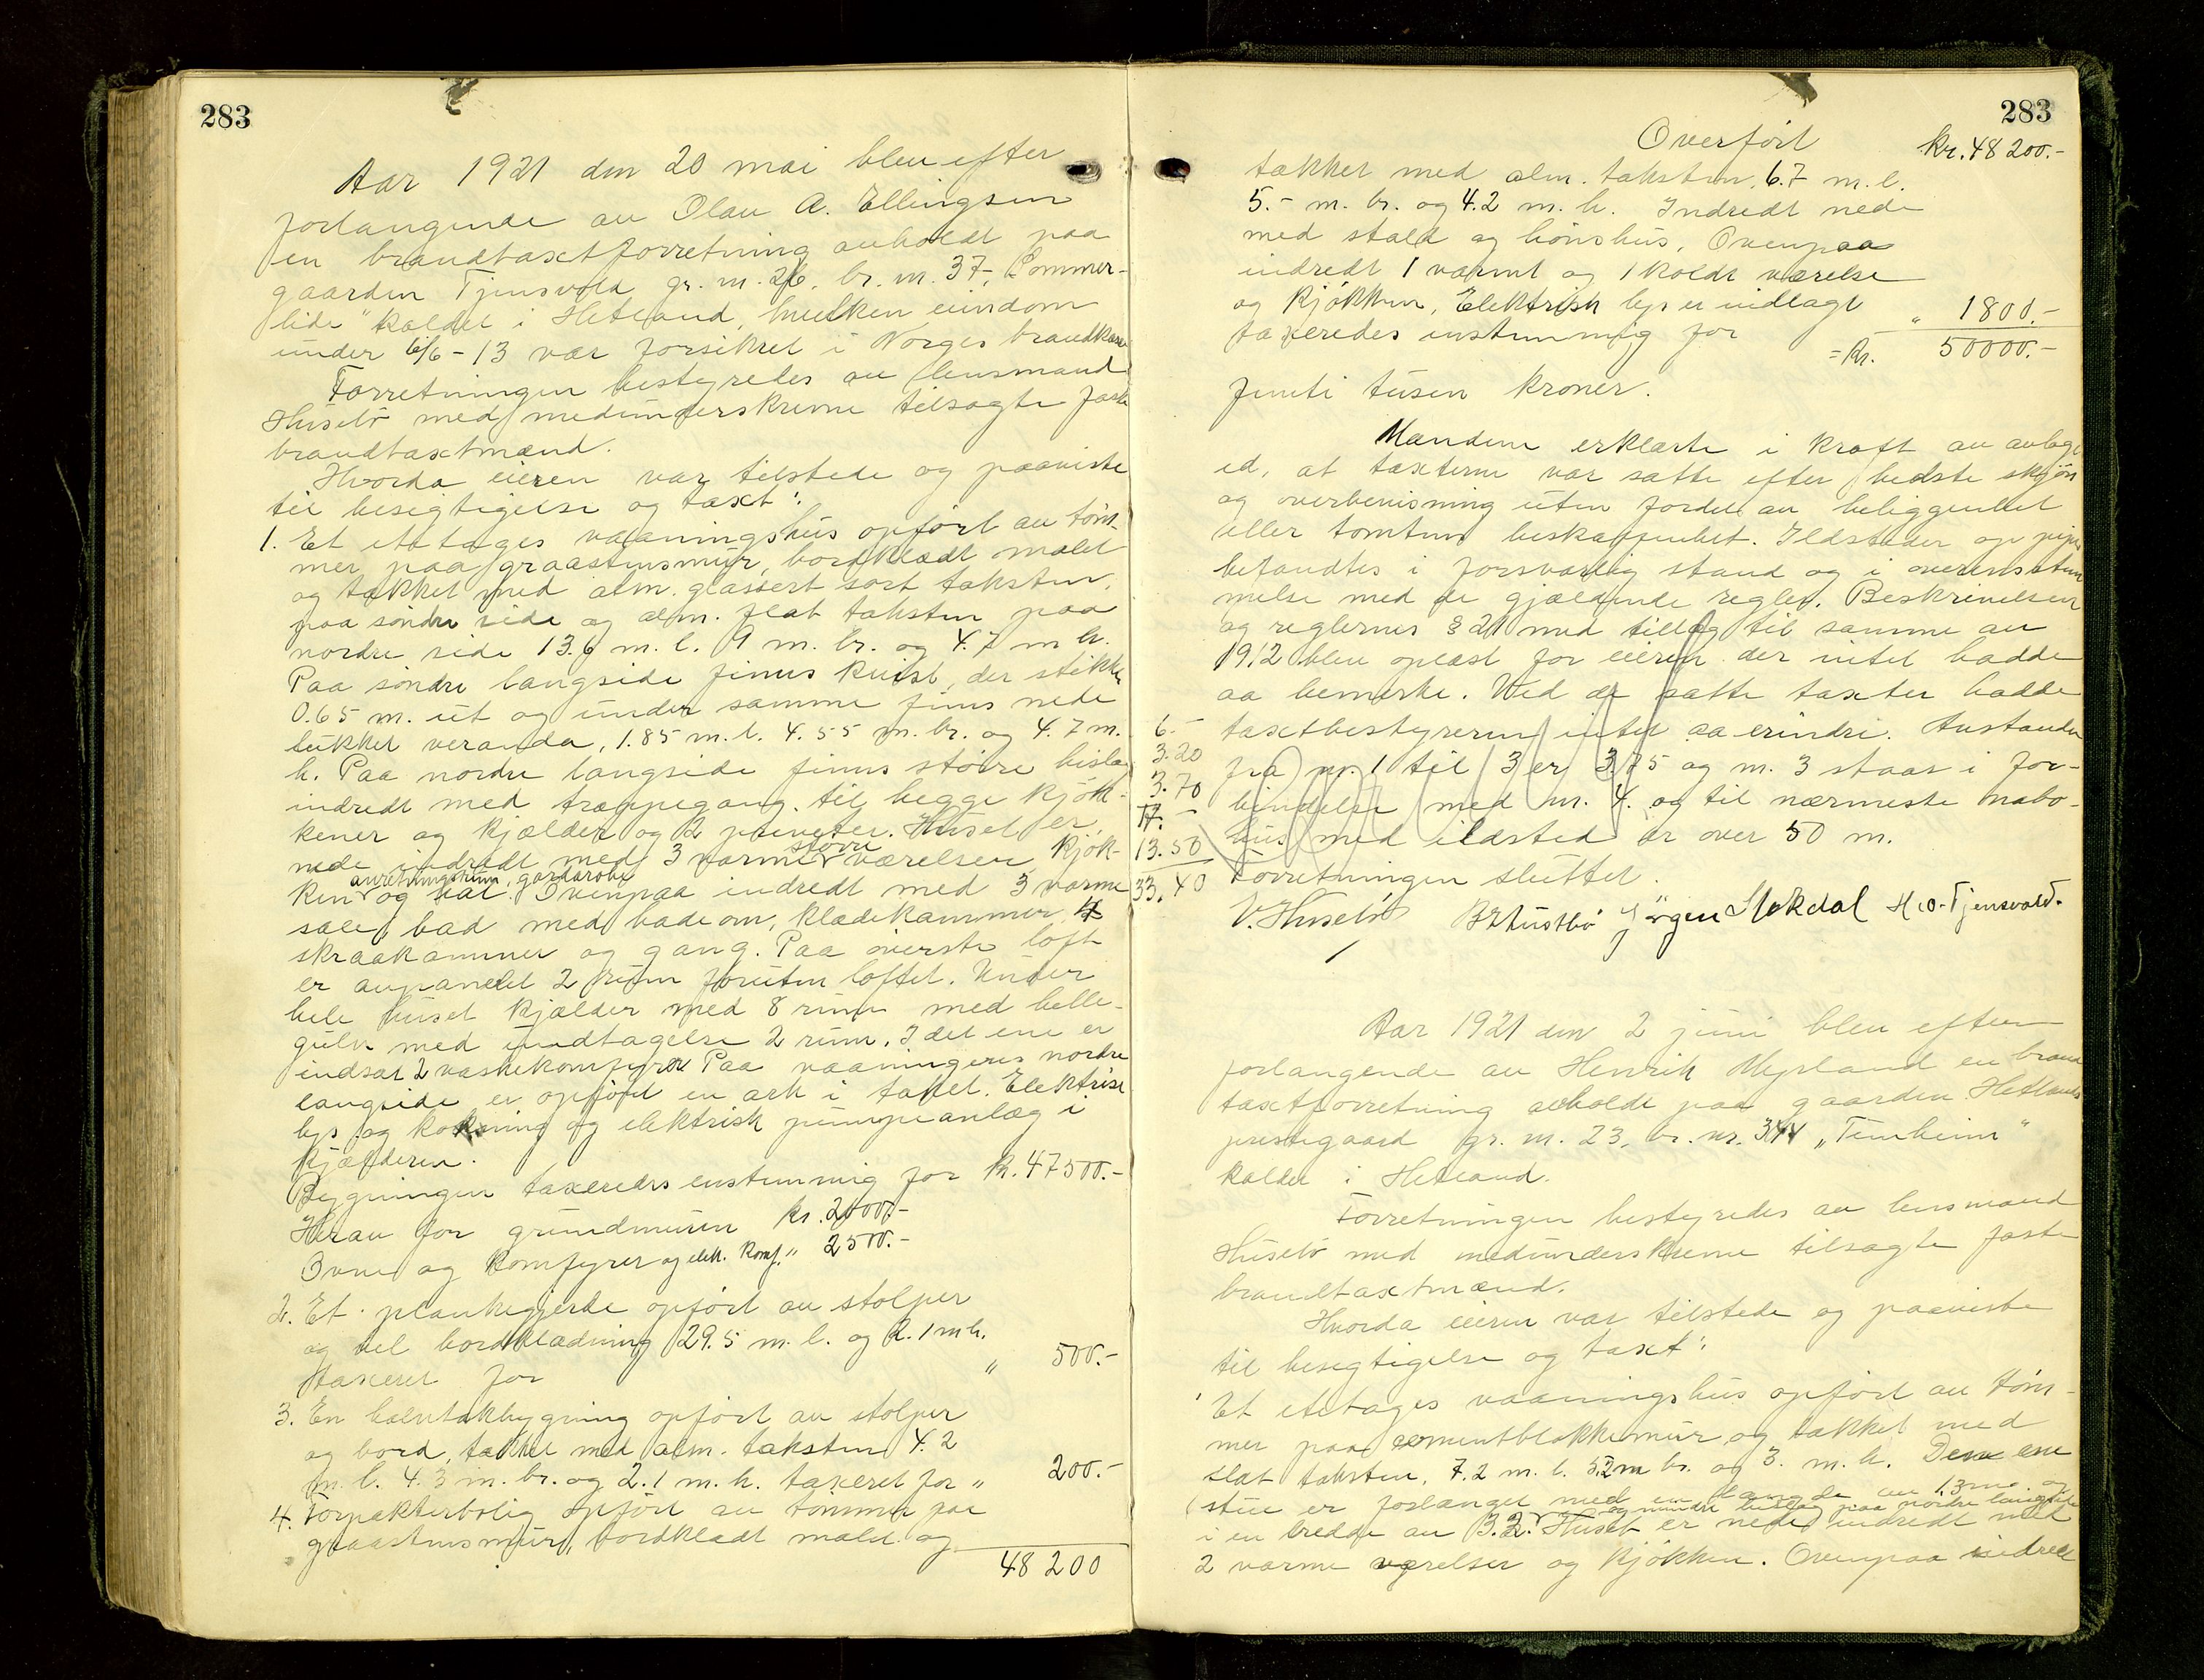 283
Aar 1921 den 20 mai blev efter
forlangende av Olav A. Ellingsen
en brandtaxtforretning avholdt paa
gaarden Tjensvold gr. nr. 26, br. nr. 37, „Sommer-
lide" kaldet i Hetland, hvilken eiendom
under 6/6-13 var forsikret i Norges brandkasse
Forretningen bestyredes av lensmand
Husebø med medunderskrevne tilsagte faste
brandtaxtmænd.
Hvorda eieren var tilstede og paaviste
til besigtigelse og taxt:
1. Et etetages vaaningshus opført av tøm-
mer paa graastensmur, bordklædt malet
og tækket med alm. glassert sort taksten
paa søndre side og alm. flat taksten paa
nordre side 13.6 m. l. 9 m. br. og 4.7 m h.
Paa søndre langside finnes kvist, der stikker
0.65 m. ut og under samme fins nede
lukket veranda, 1.85 m. l. 4.55 m. br. og 4.7 m.
h. Paa nordre langside finnes større bislag
indredt med trappegang til begge kjøk-
kener og kjælder og 2 priveter. Huset er
nede indredt med 3 varme større værelser kjøk-
ken anretningsrum, garderobe og sal. Ovenpaa indredt med 3 varme
sale, bad med badeovn, klædekammer, 4
skraakammer og gang. Paa øverste loft
er avpanelet 2 rum foruten loftet. Under
hele huset kjælder med 8 rum med helle-
gulv med undtagelse 2 rum. I det ene er
indsat 2 vaskekomfyrer Paa vaaningens nordre
langside er opført en ark i taket. Elektrisk
lys og kokning og elektrisk pumpeanlæg i
kjælderen.
Bygningen taxeredes enstemmig for kr. 47500.-
Herav for grundmuren kr. 2000.-
Ovne og komfyrer og elek. komf. " 2500.-
2. Et plankegjerde opført av stolper
og hel bordklædning 29.5 m. l. og 2.1 m h.
taxeret for " 500.-
3. En halvtakbygning opført av stolper
og bord, tækket med alm. taksten 4.2
m. l. 4.3 m. br. og 2.1 m. h. taxeret for " 200.-
4. Forpakterbolig opført av tømmer paa
graastensmur, bordklædt malet og
48 200
283
Overført kr. 48 200.-
tækket med alm. taksten, 6.7 m. l.
5.- m. br. og 4.2 m. h. Indredt nede
med stald og hønshus. Ovenpaa
indredt 1 varmt og 1 koldt værelse
og kjøkken, Elektrisk lys er indlagt
taxeredes enstemmig for " 1800.-
= Kr. 50000.-
Femti tusen kroner.
Mændene erklærte i kraft av avlagt
ed, at taxterne var satte efter bedste skjøn
og overbevisning uten fordel av beliggenhet
eller tomtens beskaffenhet. Ildsteder og piper
befandtes i forsvarlig stand og i overensstem-
melse med de gjældende regler. Beskrivelsen
og reglernes § 21 med tillæg til samme av
1912 blev oplæst for eieren der intet hadde
aa bemerke. Ved de satte taxter hadde
6.- taxtbestyreren intet aa erindre. Avstanden
3.20 fra nr. 1 til 3 er 3.75 og nr. 3 staar i for-
3.70 bindelse med nr. 4. og til nærmeste nabo-
7.-
13.50 hus med ildsted er over 50 m.
33.40 Forretningen sluttet.
V. Husebø Jørgen Stokdal H. O. Tjensvold.
Aar 1921 den 2 juni blev efter
forlangende av Henrik Myrland en brand
taxtforretning avholdt paa gaarden Hetlands
prestegaard gr. nr. 23, br. nr. 344 „Temheim"
kaldet i Hetland.
Forretningen bestyredes av lensmand
Husebø med medunderskrevne tilsagte faste
brandtaxtmænd.
Hvorda eieren var tilstede og paaviste
til besigtigelse og taxt:
1 Et etetages vaaningshus opført av tøm-
mer paa cementblokkemur og tækket med
slat taksten, 7.2 m. l. 5.2 m br. og 3. m. h. Den ene
stue er forlænget med en længde av 1.3 m. og
i en bredde av 3.2. og mindre bislag paa nordre langside Huset er nede indredt med
2 varme værelser og kjøkken. Ovenpaa indredt